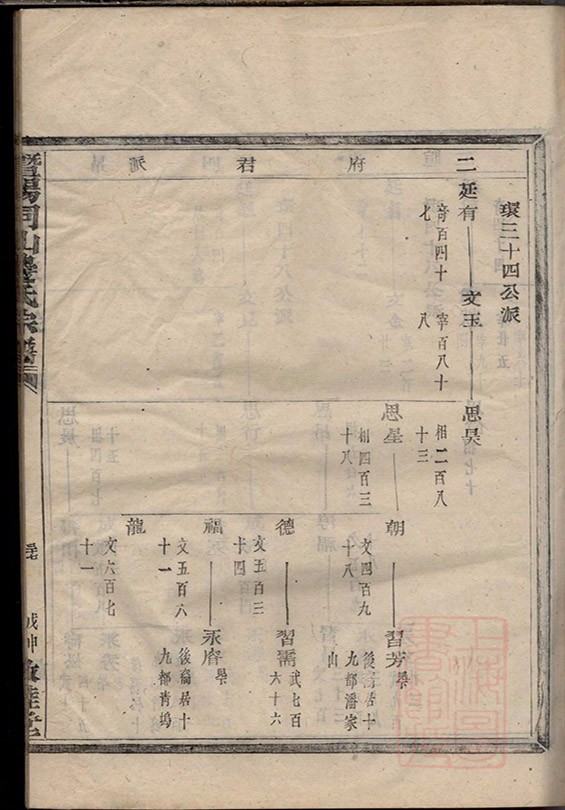 二府君派
環三十四公派
延有
奇百四十七
文玉
宰百八十八
思昊
相二百八十三
思星
相四百三十八
朝
文四百九十八
習芳
後裔居十九都潘家山
德
文五百三十四
習需
武七百六十六
福
文五百六十一
永㾗
後裔居十九都青塢
龍
文六百七十一
暨陽同山邊氏宗譜
戊申